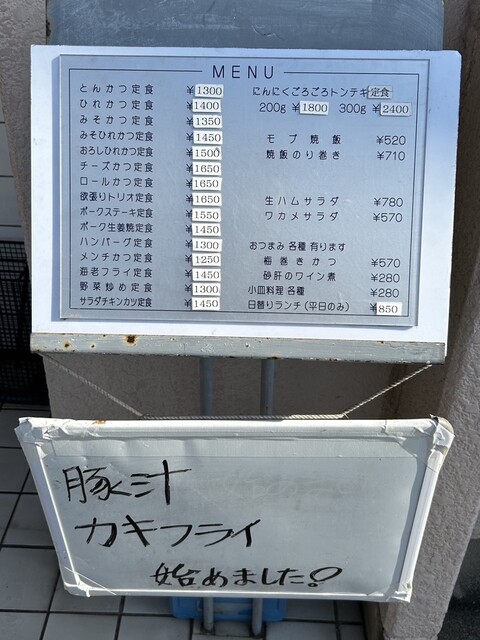 MENU
とんかつ定食 ¥1300
ひれかつ定食 ¥1400
みそかつ定食 ¥1350
みそひれかつ定食 ¥1450
おろしひれかつ定食 ¥1500
チーズかつ定食 ¥1650
ロールかつ定食 ¥1650
欲張りトリオ定食 ¥1650
ポークステーキ定食 ¥1550
ポーク生姜焼定食 ¥1450
ハンバーグ定食 ¥1300
メンチかつ定食 ¥1250
海老フライ定食 ¥1450
野菜炒め定食 ¥1300
サラダチキンカツ定食 ¥1450
にんにくごろごろトンテキ定食
200g ¥1800 300g ¥2400
モブ焼飯 ¥520
焼飯のり巻き ¥710
生ハムサラダ ¥780
ワカメサラダ ¥570
おつまみ 各種 有ります
梅巻きかつ ¥570
砂肝のワイン煮 ¥280
小皿料理 各種 ¥280
日替りランチ(平日のみ) ¥850
豚汁
カキフライ
始めました!